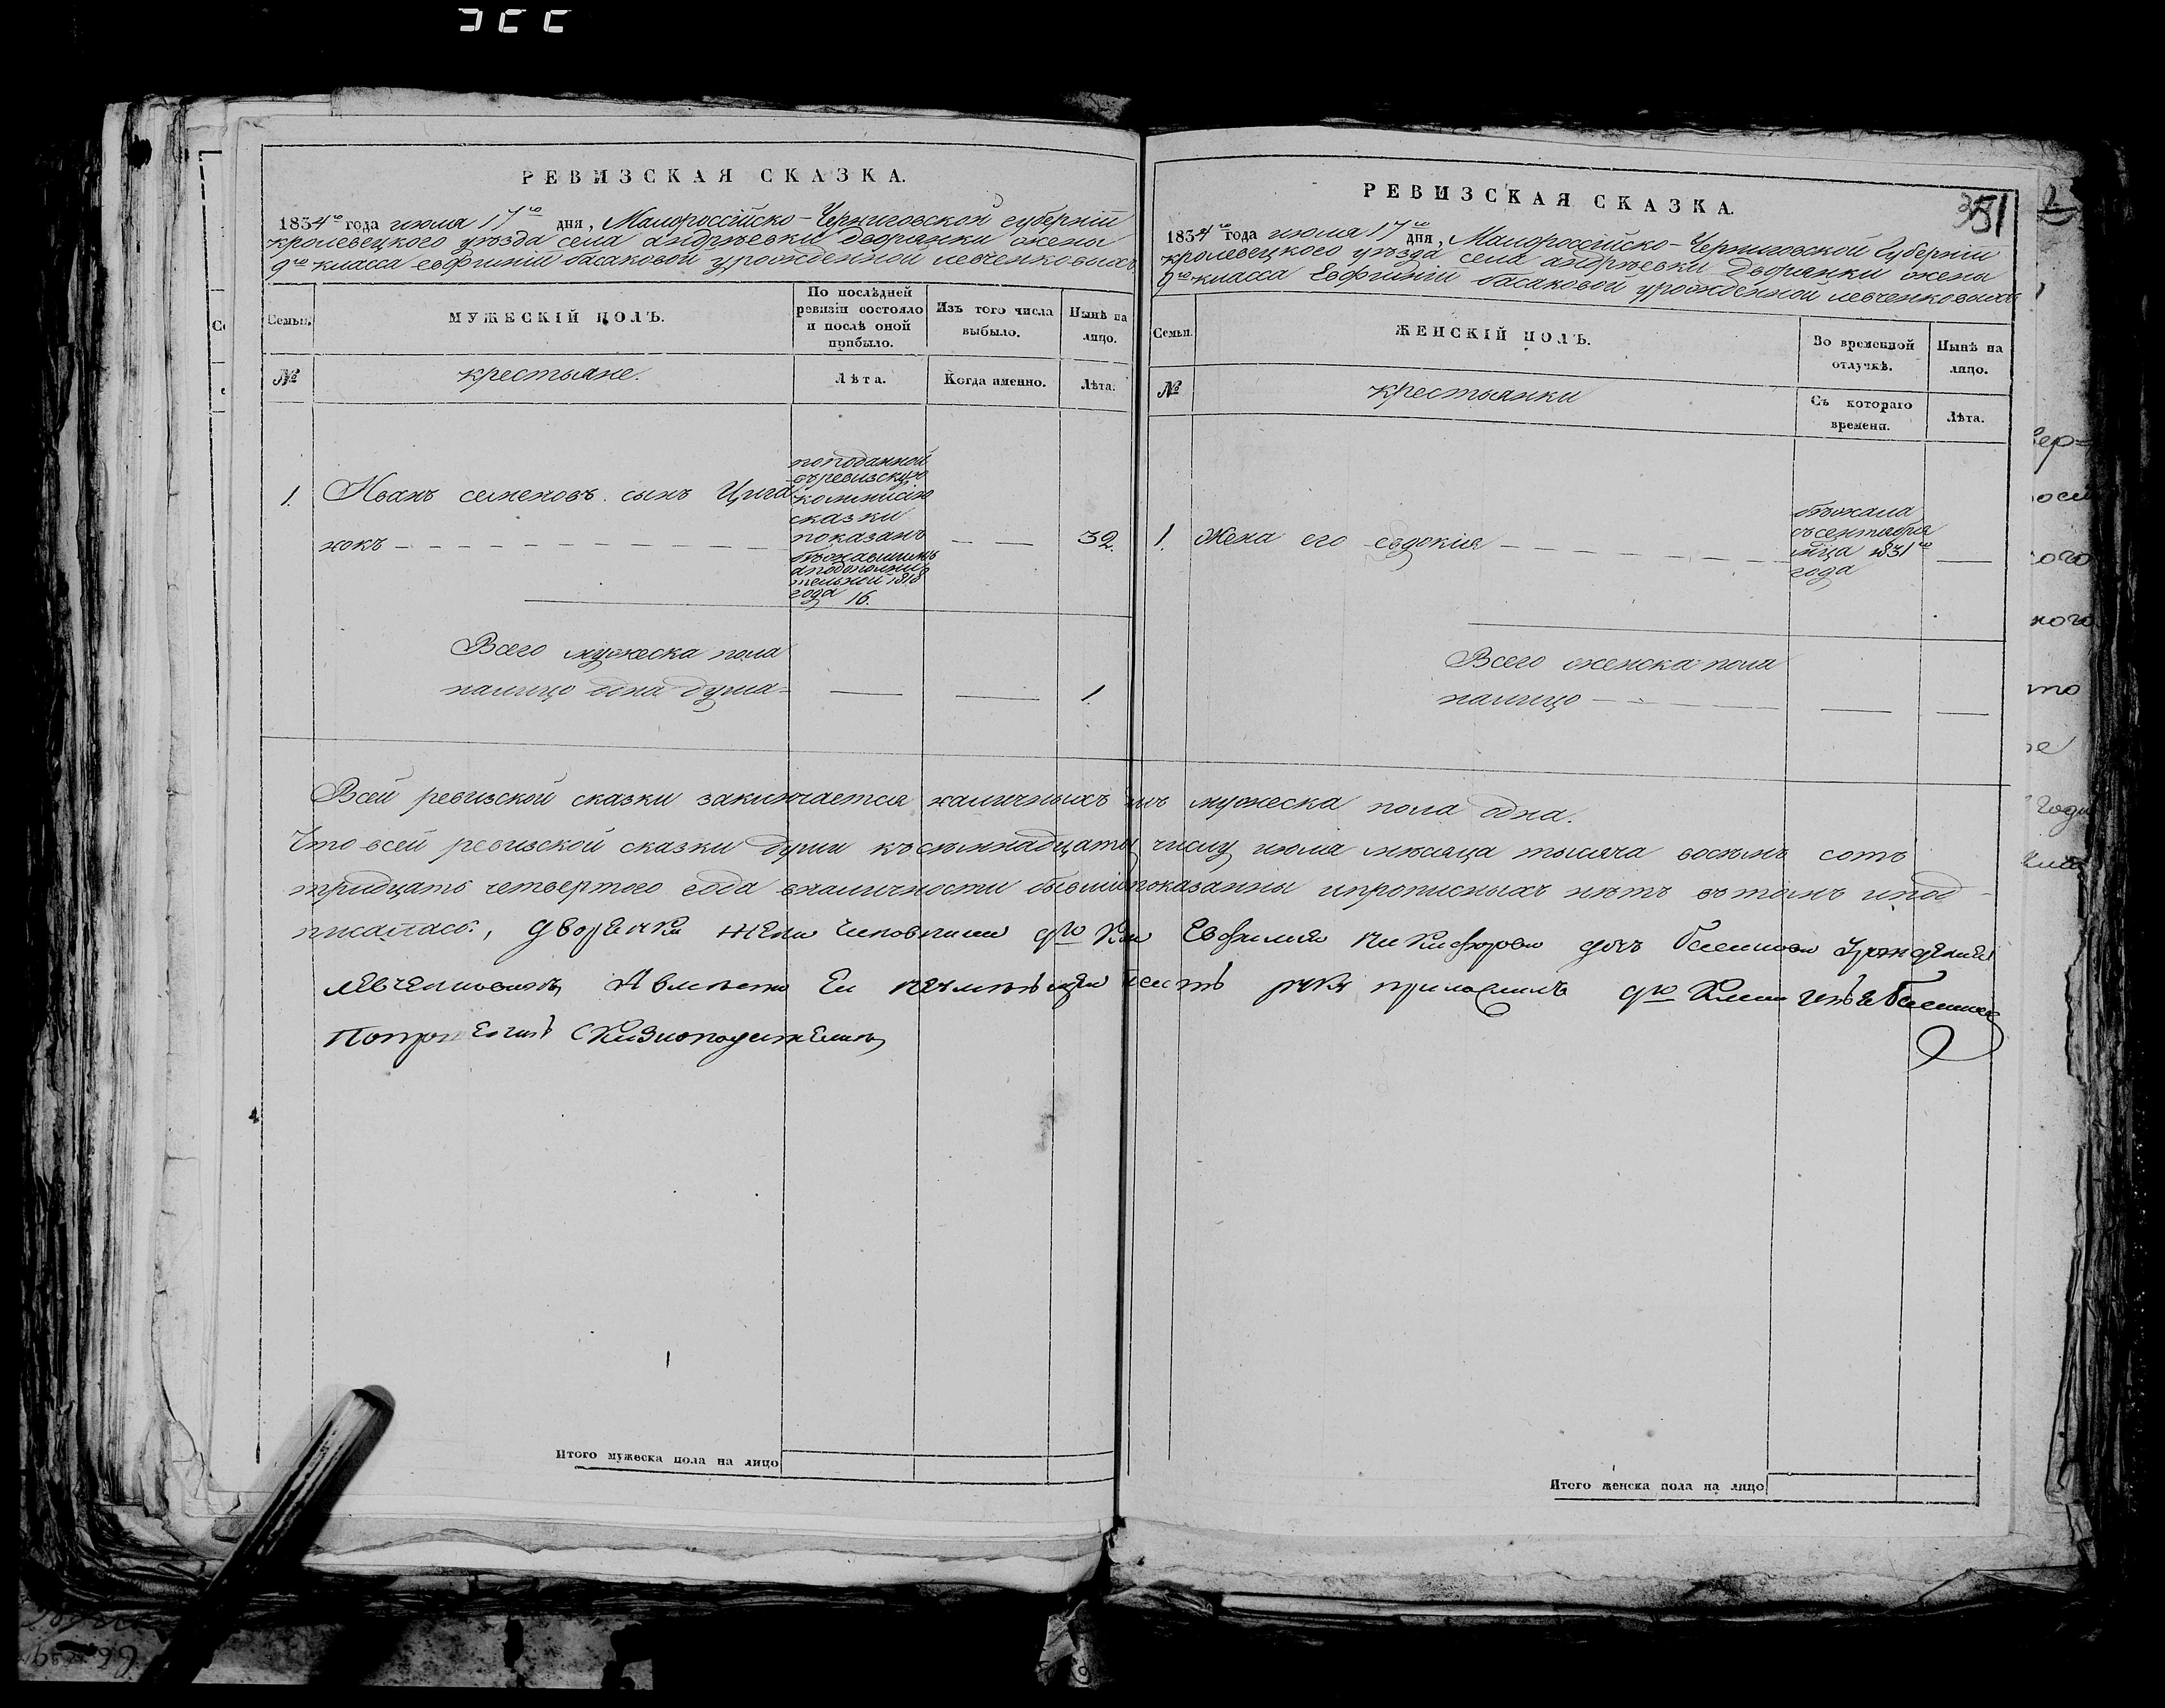 РЕВИЗСКАЯ СКАЗКА.
1834го года июля 17го дня, Малороссійско-Черниговской губерніи
кролевецкого уѣзда села андрѣевки дворянки жены
9го класса евфиміи басаковой урожденной левченковыхъ
Семьи.
МУЖЕСКІЙ ПОЛЪ.
По послѣдней
ревизіи состояло
и послѣ оной
прибыло.
Изъ того числа
выбыло.
Нынѣ на
лицо.
№
крестьяне.
Лѣта.
Когда именно.
Лѣта.
1. Иванъ семеновъ сынъ Цига
нокъ
поподанной
въревизскую
коммисію
сказки
показанъ
бѣжавшимъ
аподополни
тельной 1818
года 16.
32.
Всего мужеска пола
налицо одна душа
1
РЕВИЗСКАЯ СКАЗКА.
351
1834го года июля 17го дня, Малороссійско-Черниговской Губерніи
кролевецкого уѣзда села андрѣевки дворянки жены
9го класса Евфиміи басаковой урожденной левченковыхъ
Семьи.
ЖЕНСКІЙ ПОЛЪ.
Во временной
отлучкѣ.
Нынѣ на
лицо.
№
крестьянки
Съ котораго
времени.
Лѣта.
1. Жена его евдокия
бѣжала
съсентября
мца 1831го
года
Всего женска пола
налицо
Всей ревизской сказки заключается наличныхъ мужеска пола одна.
Что всей ревизской сказки души къ семнадцатому числу июля мѣсяца тысяча восемь сотъ
тридцать четвертого года вналичности бывшие показанны ипрописныхъ нѣтъ вътомъ ипод
писалась, дворянка жена чиновника 9го Кла Евфимия Никифорова дочь
левченковыхъ, Авместо Ея руку приложилъ 9го Класа
Итого мужеска пола на лицо
Итого женска пола на лицо